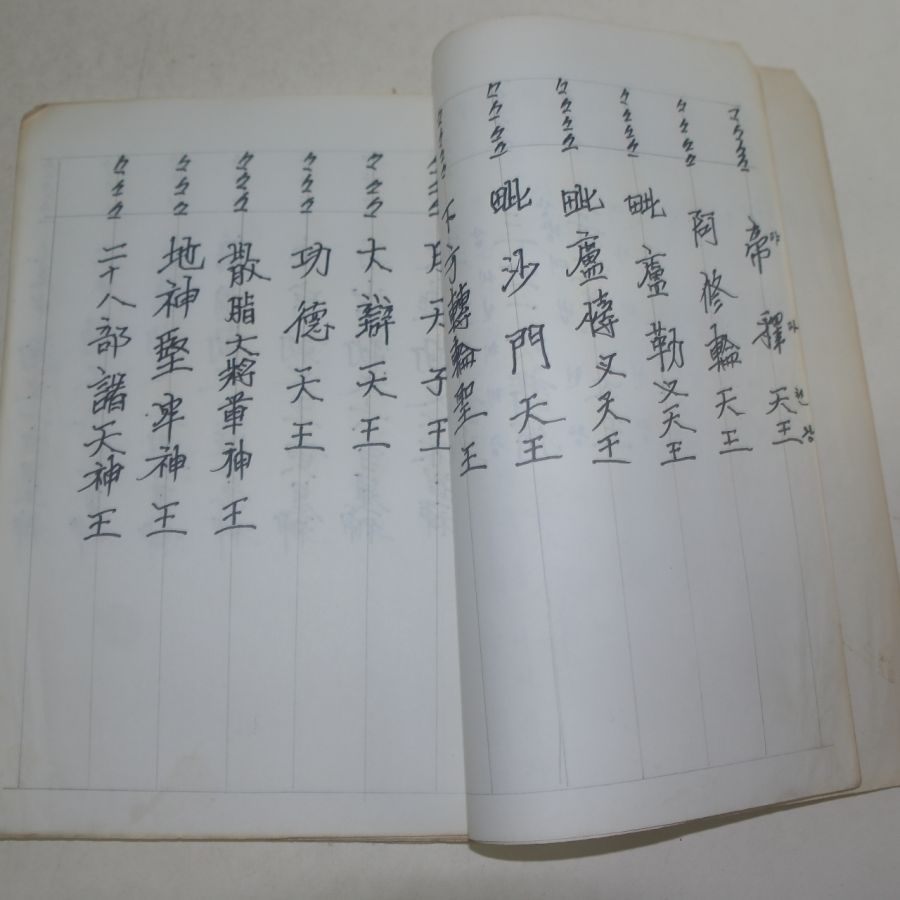 々々々々 帝釋天王
々々々々 阿修輪天王
々々々々 毗盧勒义天王
々々々々 毗盧博义天王
々々々々 毗沙門天王
々々々々 下方轉輪聖王
々々々 月天子王
々々々 大辯天王
々々々 功德天王
々々々 散脂大將軍神王
々々々 地神堅牢神王
々々々 二十八部諸天神王